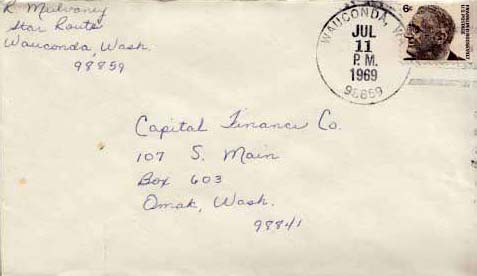 R Mulvaney
Star Route
Wauconda, Wash.
98859
WAUCONDA, WA
JUL
11
P.M.
1969
98859
6¢
Capital Finance Co.
107 S. Main
Box 603
Omak, Wash.
98841